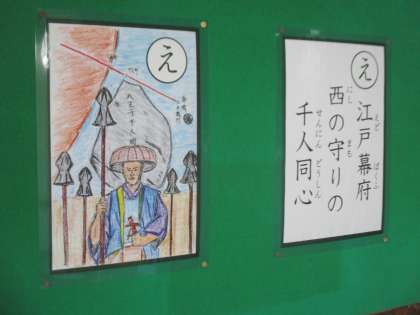 え
八王子千人同
え
江戸幕府
えど ばくふ
西の守りの
にし まも
千人同心
せんにん どうしん